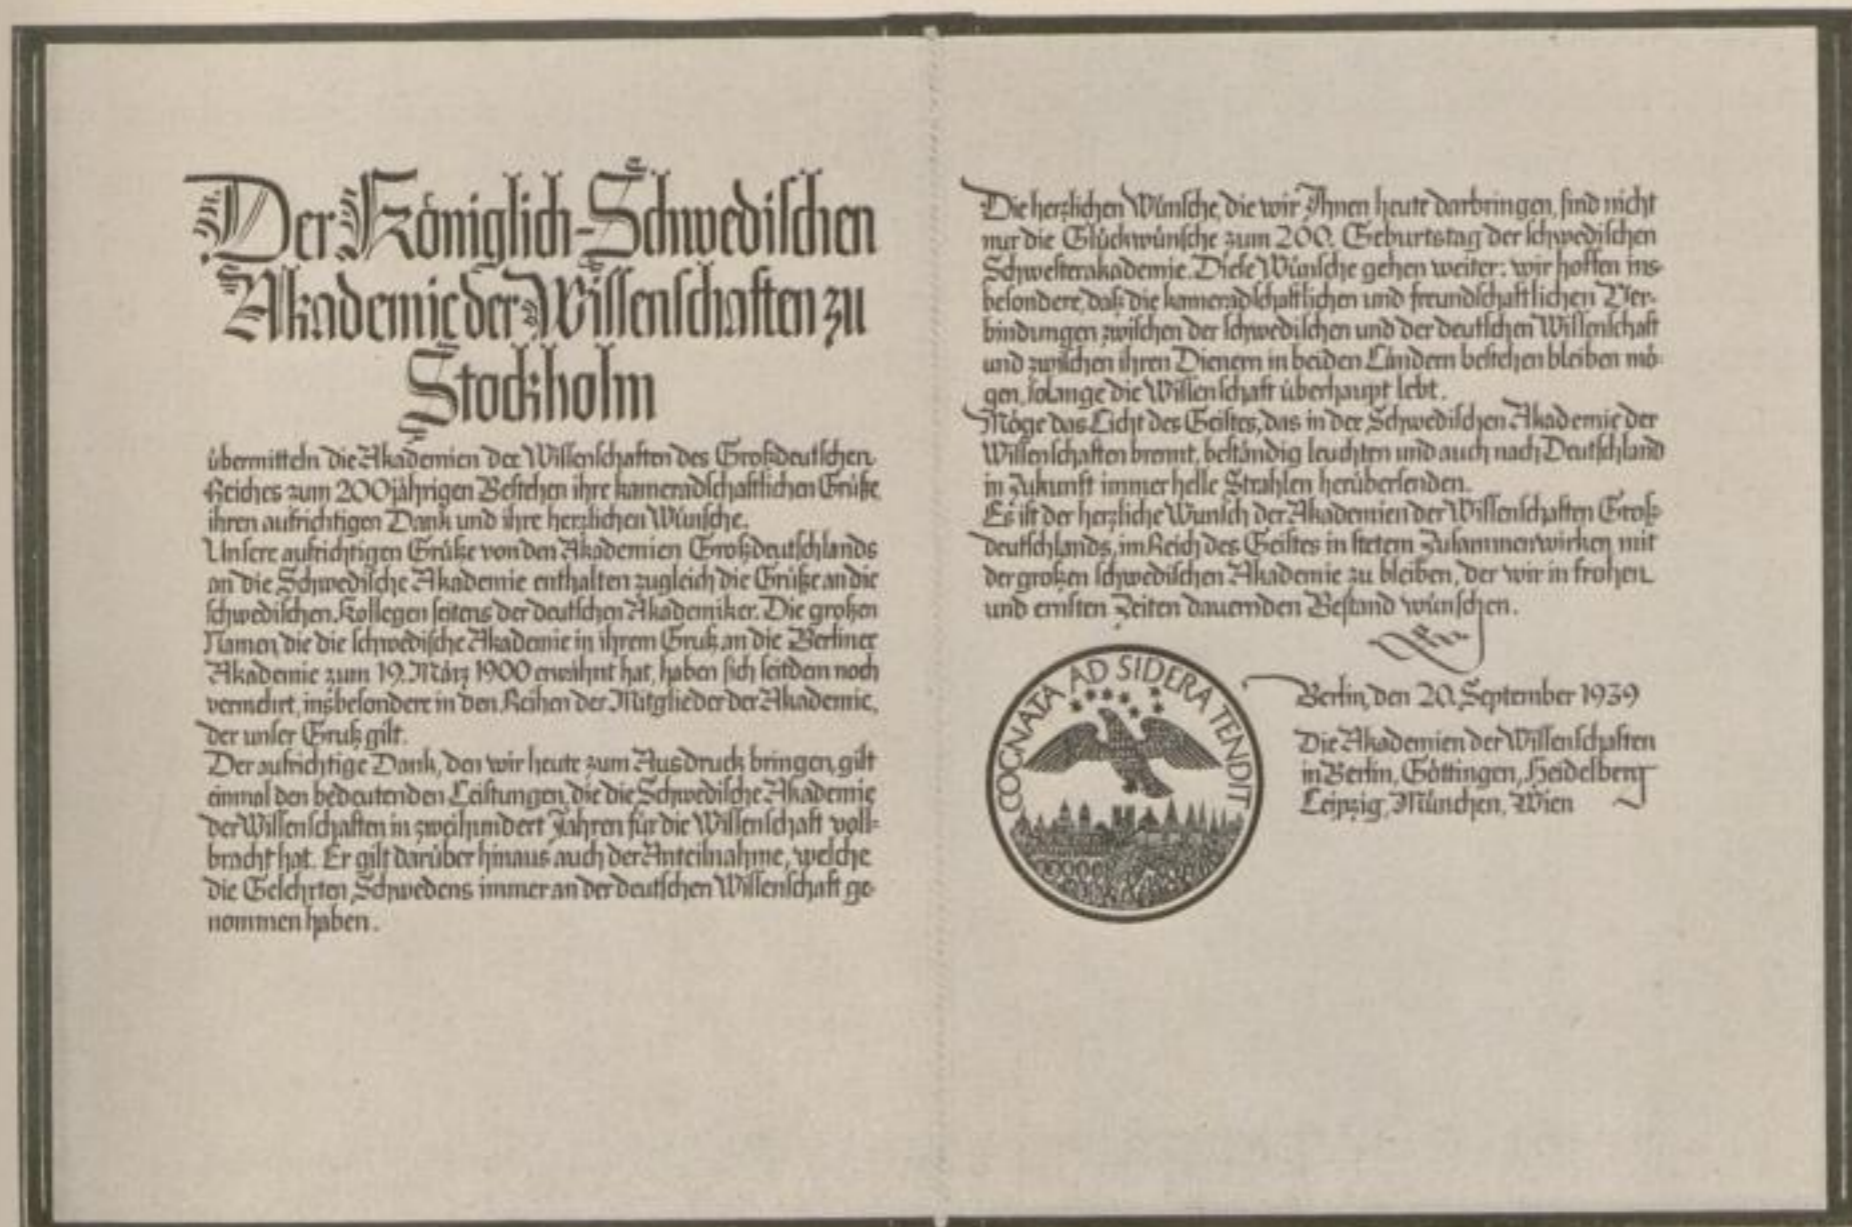 Der Königlich-Schwedischen
Akademie der Wissenschaften zu
Stockholm
übermitteln die Akademien der Wissenschaften des Großdeutschen
Reiches zum 200jährigen Bestehen ihre kameradschaftlichen Grüße,
ihren aufrichtigen Dank und ihre herzlichen Wünsche.
Unsere aufrichtigen Grüße von den Akademien Großdeutschlands
an die Schwedische Akademie enthalten zugleich die Grüße an die
schwedischen Kollegen seitens der deutschen Akademiker. Die großen
Namen, die die schwedische Akademie in ihrem Gruß an die Berliner
Akademie zum 19. März 1900 erwähnt hat, haben sich seitdem noch
vermehrt, insbesondere in den Reihen der Mitglieder der Akademie,
der unser Gruß gilt.
Der aufrichtige Dank, den wir heute zum Ausdruck bringen, gilt
einmal den bedeutenden Leistungen, die die Schwedische Akademie
der Wissenschaften in zweihundert Jahren für die Wissenschaft voll-
bracht hat. Er gilt darüber hinaus auch der Anteilnahme, welche
die Gelehrten Schwedens immer an der deutschen Wissenschaft ge-
nommen haben.
Die herzlichen Wünsche, die wir Ihnen heute darbringen, sind nicht
nur die Glückwünsche zum 200. Geburtstag der schwedischen
Schwesterakademie. Diese Wünsche gehen weiter: wir hoffen ins-
besondere, daß die kameradschaftlichen und freundschaftlichen Ver-
bindungen zwischen der schwedischen und der deutschen Wissenschaft
und zwischen ihren Dienern in beiden Ländern bestehen bleiben mö-
gen, solange die Wissenschaft überhaupt lebt.
Möge das Licht des Geistes, das in der Schwedischen Akademie der
Wissenschaften brennt, beständig leuchten und auch nach Deutschland
in Zukunft immer helle Strahlen herübersenden.
Es ist der herzliche Wunsch der Akademien der Wissenschaften Groß-
deutschlands, im Reich des Geistes in stetem Zusammenwirken mit
der großen schwedischen Akademie zu bleiben, der wir in frohen
und ernsten Zeiten dauernden Bestand wünschen.
COGNATA AD SIDERA TENDIT
Berlin, den 20. September 1939
Die Akademien der Wissenschaften
in Berlin, Göttingen, Heidelberg
Leipzig, München, Wien